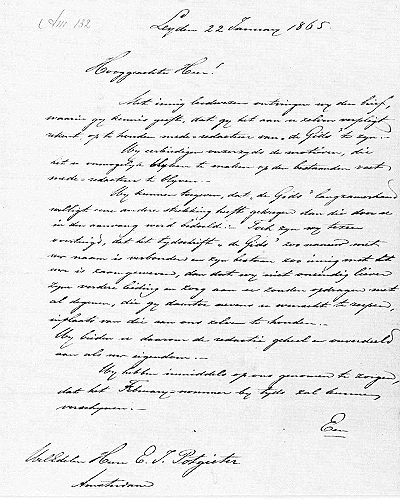 AIII 132
Leyden 22 January 1865.
Hooggeachte Heer!
Met innig leedwezen ontvingen wy den brief,
waarin gy kennis geeft, dat gy het aan u zelven verpligt
rekent, op te houden mede-redacteur van "de Gids" te zyn.
Wy eerbiedigen de motieven, die
het u onmogelyk blyken te maken op den bestaanden voet
mede-redacteur te blyven.
Wy kunnen toegeven, dat "de Gids" langzamerhand
eene andere strekking heeft gekregen dan die door u
in den aanvang werd bedoeld. Toch zyn wy tevens
overtuigd, dat het tydschrift "de Gids" zoo met
uw naam is verbonden en zyn bestaan zoo innig met dit
van u is zaamgeweven, dan dat wy niet oneindig liever
zyne verdere leiding en zorg aan u zouden opdragen met
al degenen, die gy daartoe nevens u wenscht te roepen,
in plaats van die aan ons zelven te houden.
Wy bieden u daarom de redactie geheel en onverdeeld
aan als uw eigendom.
Wy hebben inmiddels op ons genomen te zorgen,
dat het February-nummer by tyds zal kunnen
verschynen.
Een
Weledelen Heer E. J. Potgieter
Amsterdam